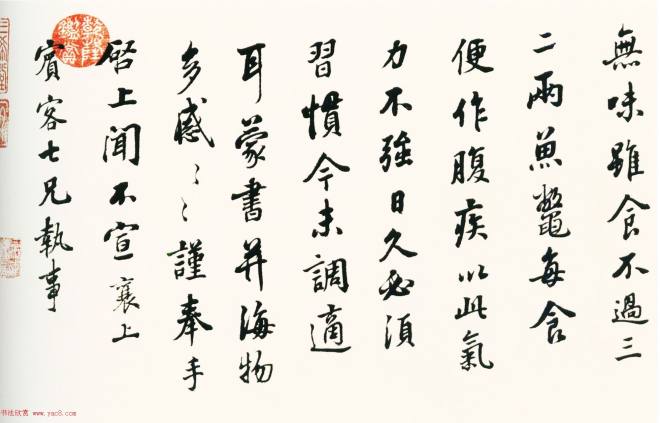 無味雖食不過三
二兩魚鼈每食
便作腹疾以此氣
力不強日久必須
習慣今未調適
耳蒙書并海物
多感〻謹奉手
啓上聞不宣襄上
賓客七兄執事
乾隆鑑賞
书法欣赏 www.yac8.com